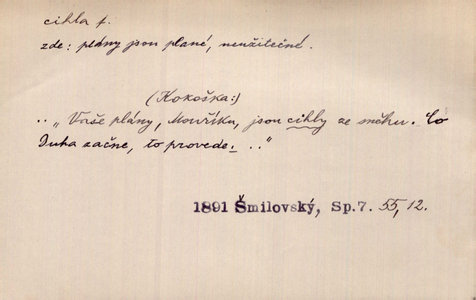 cihla f.
zde: plány jsou plané, neužitečné.
(Kokoška:)
.. „Vaše plány, Mouříku, jsou cihly ze sněhu. Co
Duha začne, to provede. .."
1891 Šmilovský, Sp.7. 55, 12.